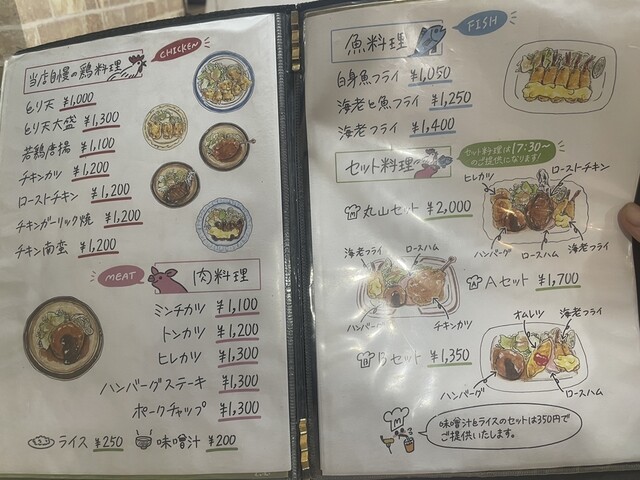 当店自慢の鶏料理
CHICKEN
とり天 ¥1,000
とり天大盛 ¥1,300
若鶏唐揚 ¥1,100
チキンカツ ¥1,200
ローストチキン ¥1,200
チキンガーリック焼 ¥1,200
チキン南蛮 ¥1,200
MEAT
肉料理
ミンチカツ ¥1,100
トンカツ ¥1,200
ヒレカツ ¥1,300
ハンバーグステーキ ¥1,300
ポークチャップ ¥1,300
ライス ¥250 味噌汁 ¥200
魚料理
FISH
白身魚フライ ¥1,050
海老と魚フライ ¥1,250
海老フライ ¥1,400
セット料理
セット料理は17:30〜
のご提供になります!
丸山セット ¥2,000
ヒレカツ
ローストチキン
ハンバーグ
ロースハム
海老フライ
Aセット ¥1,700
海老フライ
ロースハム
ハンバーグ
チキンカツ
Bセット ¥1,350
オムレツ
海老フライ
ハンバーグ
ロースハム
味噌汁とライスのセットは350円で
ご提供いたします。